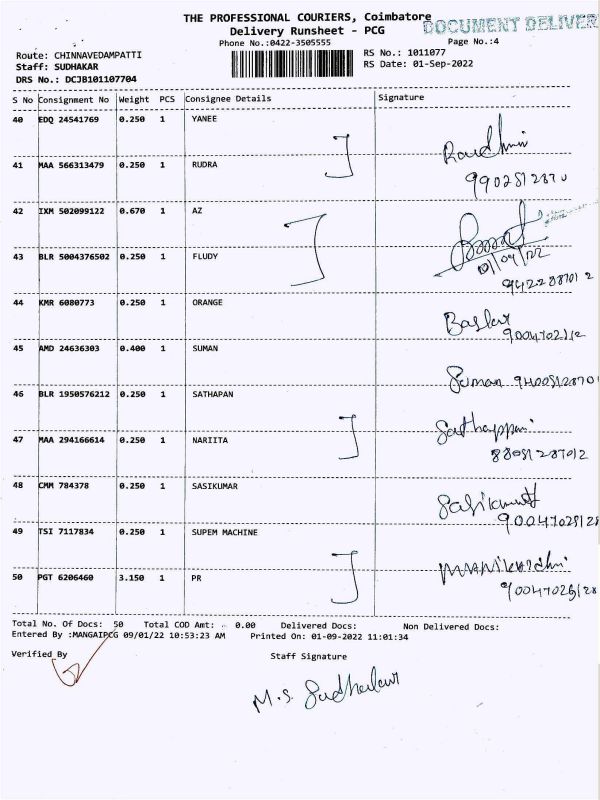 THE PROFESSIONAL COURIERS, Coimbatore
DOCUMENT DELIVER
Delivery Runsheet - PCG
Phone No.:0422-3505555 Page No.:4
Route: CHINNAVEDAMPATTI RS No.: 1011077
Staff: SUDHAKAR RS Date: 01-Sep-2022
DRS No.: DCJB101107704
S No Consignment No Weight PCS Consignee Details Signature
40 EDQ 24541769 0.250 1 YANEE
41 MAA 566313479 0.250 1 RUDRA
42 IXM 502099122 0.670 1 AZ
43 BLR 5004376502 0.250 1 FLUDY
01/09/22
44 KMR 6080773 0.250 1 ORANGE
Baskar
45 AMD 24636303 0.400 1 SUMAN
Suman
46 BLR 1950576212 0.250 1 SATHAPAN
Sathappan
47 MAA 294166614 0.250 1 NARIITA
48 CMM 784378 0.250 1 SASIKUMAR
Sasikumar
49 TSI 7117834 0.250 1 SUPEM MACHINE
50 PGT 6206460 3.150 1 PR
Total No. Of Docs: 50 Total COD Amt: 0.00 Delivered Docs: Non Delivered Docs:
Entered By :MANGAIPCG 09/01/22 10:53:23 AM Printed On: 01-09-2022 11:01:34
Verified By Staff Signature
M.S. Sudhakar